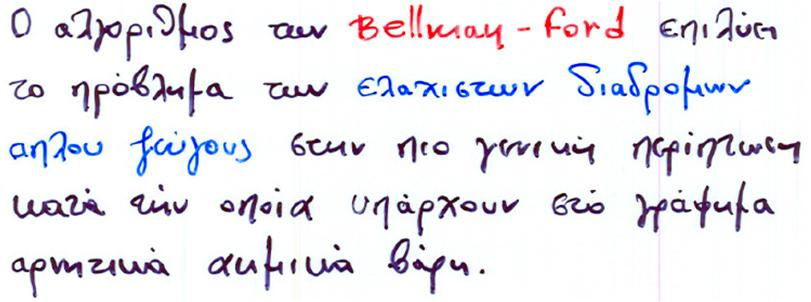 Ο αλγοριθμος των Bellman - Ford επιλύει
το πρόβλημα των ελαχιστων διαδρομων
απλου ζεύγους στην πιο γενική περίπτωση
κατά την οποία υπάρχουν στο γράφημα
αρνητικά ακμικά βάρη.